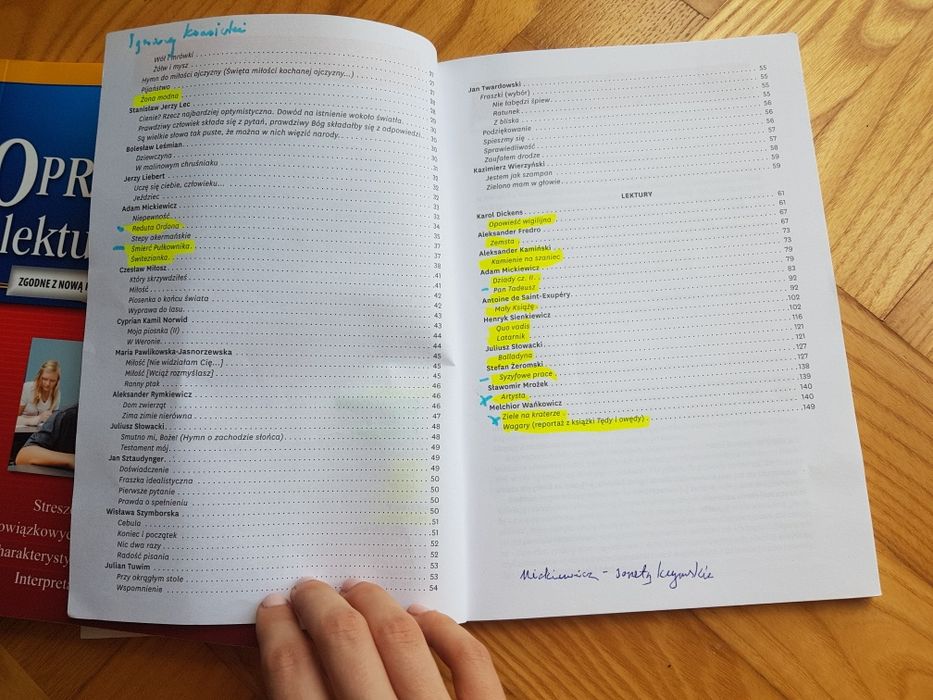 Ignacy Krasicki
Wół i mrówki
Żółw i mysz
Hymn do miłości ojczyzny (Święta miłości kochanej ojczyzny...)
Pijaństwo
Żona modna
Stanisław Jerzy Lec
Cienie? Rzecz najbardziej optymistyczna. Dowód na istnienie wokoło światła.
Prawdziwy człowiek składa się z pytań, prawdziwy Bóg składałby się z odpowiedzi. 30
Są wielkie słowa tak puste, że można w nich więzić narody. 30
Bolesław Leśmian
Dziewczyna
W malinowym chruśniaku
Jerzy Liebert
Uczę się ciebie, człowieku...
Jeździec
Adam Mickiewicz
Niepewność
Reduta Ordona
Stepy akermańskie
Śmierć Pułkownika
Świtezianka
Czesław Miłosz
Który skrzywdziłeś
Miłość
Piosenka o końcu świata
Wyprawa do lasu
Cyprian Kamil Norwid
Moja piosnka (II)
W Weronie
Maria Pawlikowska-Jasnorzewska
Miłość [Nie widziałam Cię...]
Miłość [Wciąż rozmyślasz]
Ranny ptak
Aleksander Rymkiewicz
Dom zwierząt
Zima zimie nierówna
Juliusz Słowacki
Smutno mi, Boże! (Hymn o zachodzie słońca)
Testament mój
Jan Sztaudynger
Doświadczenie
Fraszka idealistyczna
Pierwsze pytanie
Prawda o spełnieniu
Wisława Szymborska
Cebula
Koniec i początek
Nic dwa razy
Radość pisania
Julian Tuwim
Przy okrągłym stole 53
Wspomnienie 54
Jan Twardowski
Fraszki (wybór)
Nie łabędzi śpiew
Ratunek
Z bliska
Podziękowanie
Spieszmy się
Sprawiedliwość
Zaufałem drodze
Kazimierz Wierzyński
Jestem jak szampan
Zielono mam w głowie
LEKTURY
Karol Dickens
Opowieść wigilijna
Aleksander Fredro
Zemsta
Aleksander Kamiński
Kamienie na szaniec
Adam Mickiewicz
Dziady cz. II
Pan Tadeusz
Antoine de Saint-Exupéry
Mały Książę
Henryk Sienkiewicz
Quo vadis
Latarnik
Juliusz Słowacki
Balladyna
Stefan Żeromski
Syzyfowe prace
Sławomir Mrożek
Artysta
Melchior Wańkowicz
Ziele na kraterze
Wagary (reportaż z książki Tędy i owędy) 149
Mickiewicz - sonety krymskie
OPR
lektu
ZGODNE Z NOWĄ
Streszc
owiązkowyc
harakterysty
Interpreta